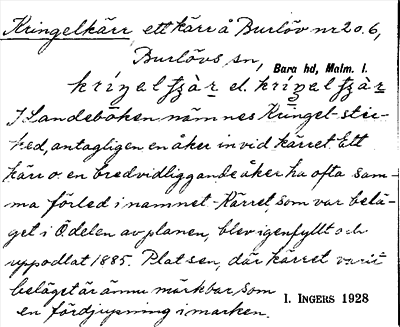 Kringelkärr, ett kärr å Burlöv nr 2 o. 6,
Burlövs sn, Bara hd, Malm. l.
el.
I Landeboken nämnes Kringel-stic-
ked, antagligen en åker invid kärret. Ett
kärr o. en bredvidliggande åker ha ofta sam-
ma förled i namnet. Kärret som var belä-
get i Ö delen av planen, blev igenfyllt och
uppodlat 1885. Platsen, där kärret varit
beläget är ännu märkbar, som
en fördjupning i marken.
I. INGERS 1928